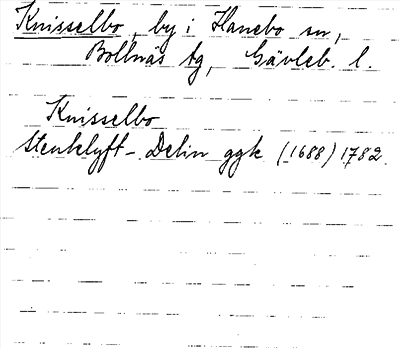 Knisselbo, by i Hanebo sn,
Bollnäs tg, Gävleb. l.
Knisselbo
Stenklyft - Delin ggk (1688) 1782.